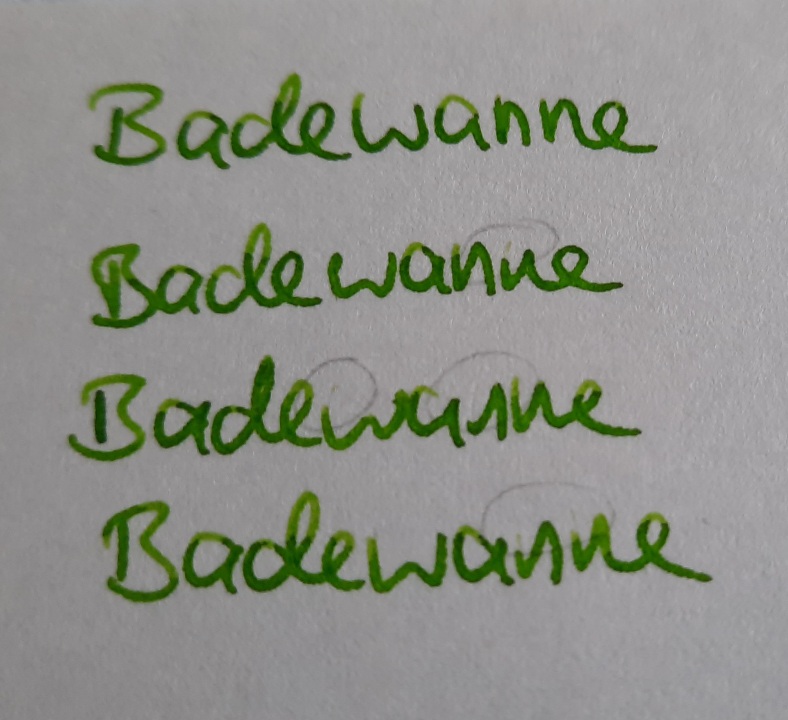 Badewanne
Badewanne
Badewanne
Badewanne